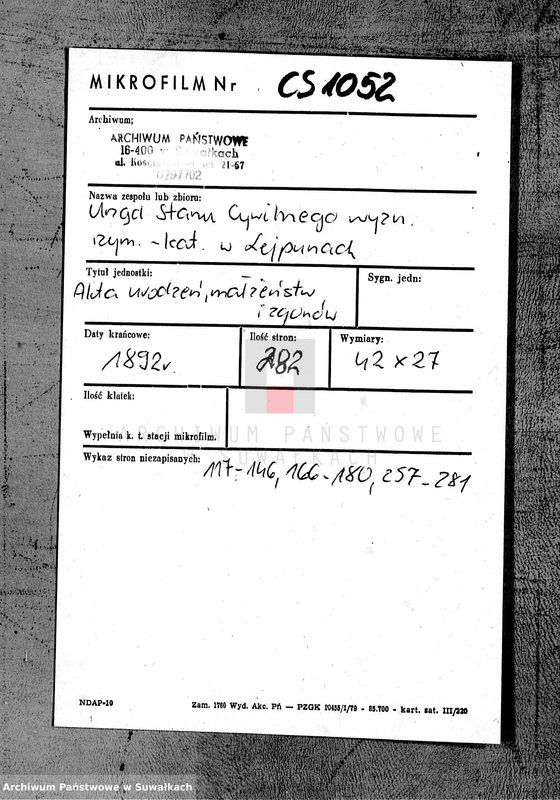 MIKROFILM Nr CS 1052
Archiwum;
ARCHIWUM PAŃSTWOWE
16-400 w Suwałkach
al. Kościuszki tel 21-67
Nazwa zespołu lub zbioru:
Urząd Stanu Cywilnego wyzn.
rzym. - kat. w Lejpunach
Tytuł jednostki:
Akta urodzeń, małżeństw
i zgonów
Sygn. jedn:
Daty krańcowe:
1892r.
Ilość stron:
282
Wymiary:
42 x 27
Ilość klatek:
Wypełnia k. t. stacji mikrofilm.
ARCHIWUM PAŃSTWOWE
W SUWAŁKACH
Wykaz stron niezapisanych:
117-146, 166-180, 257-281
NDAP-10
Zam. 1760 Wyd. Akc. Pń — PZGK 10455/I/79 - 85.700 - kart. sat. III/220
Archiwum Państwowe w Suwałkach